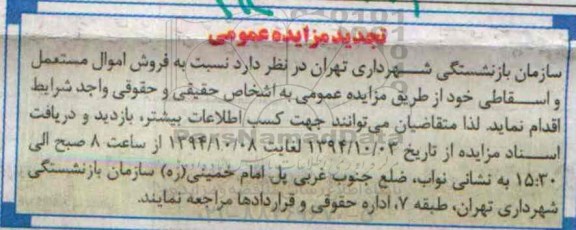 تجدید مزایده عمومی
سازمان بازنشستگی شهرداری تهران در نظر دارد نسبت به فروش اموال مستعمل
و اسقاطی خود از طریق مزایده عمومی به اشخاص حقیقی و حقوقی واجد شرایط
اقدام نماید. لذا متقاضیان می‌توانند جهت کسب اطلاعات بیشتر، بازدید و دریافت
اسناد مزایده از تاریخ ۱۳۹۴/۱۰/۰۳ لغایت ۱۳۹۴/۱۰/۰۸ از ساعت ۸ صبح الی
۱۵:۳۰ به نشانی نواب، ضلع جنوب غربی پل امام خمینی(ره) سازمان بازنشستگی
شهرداری تهران، طبقه ۷، اداره حقوقی و قراردادها مراجعه نمایند.